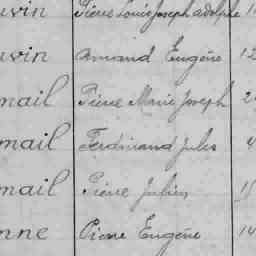 uvin Pierre Louis Joseph Adolphe 1
uvin Armand Eugène 12
mail Pierre Marie Joseph 2
mail Ferdinand Jules 4
mail Pierre Julien 1
nne Pierre Eugène 14